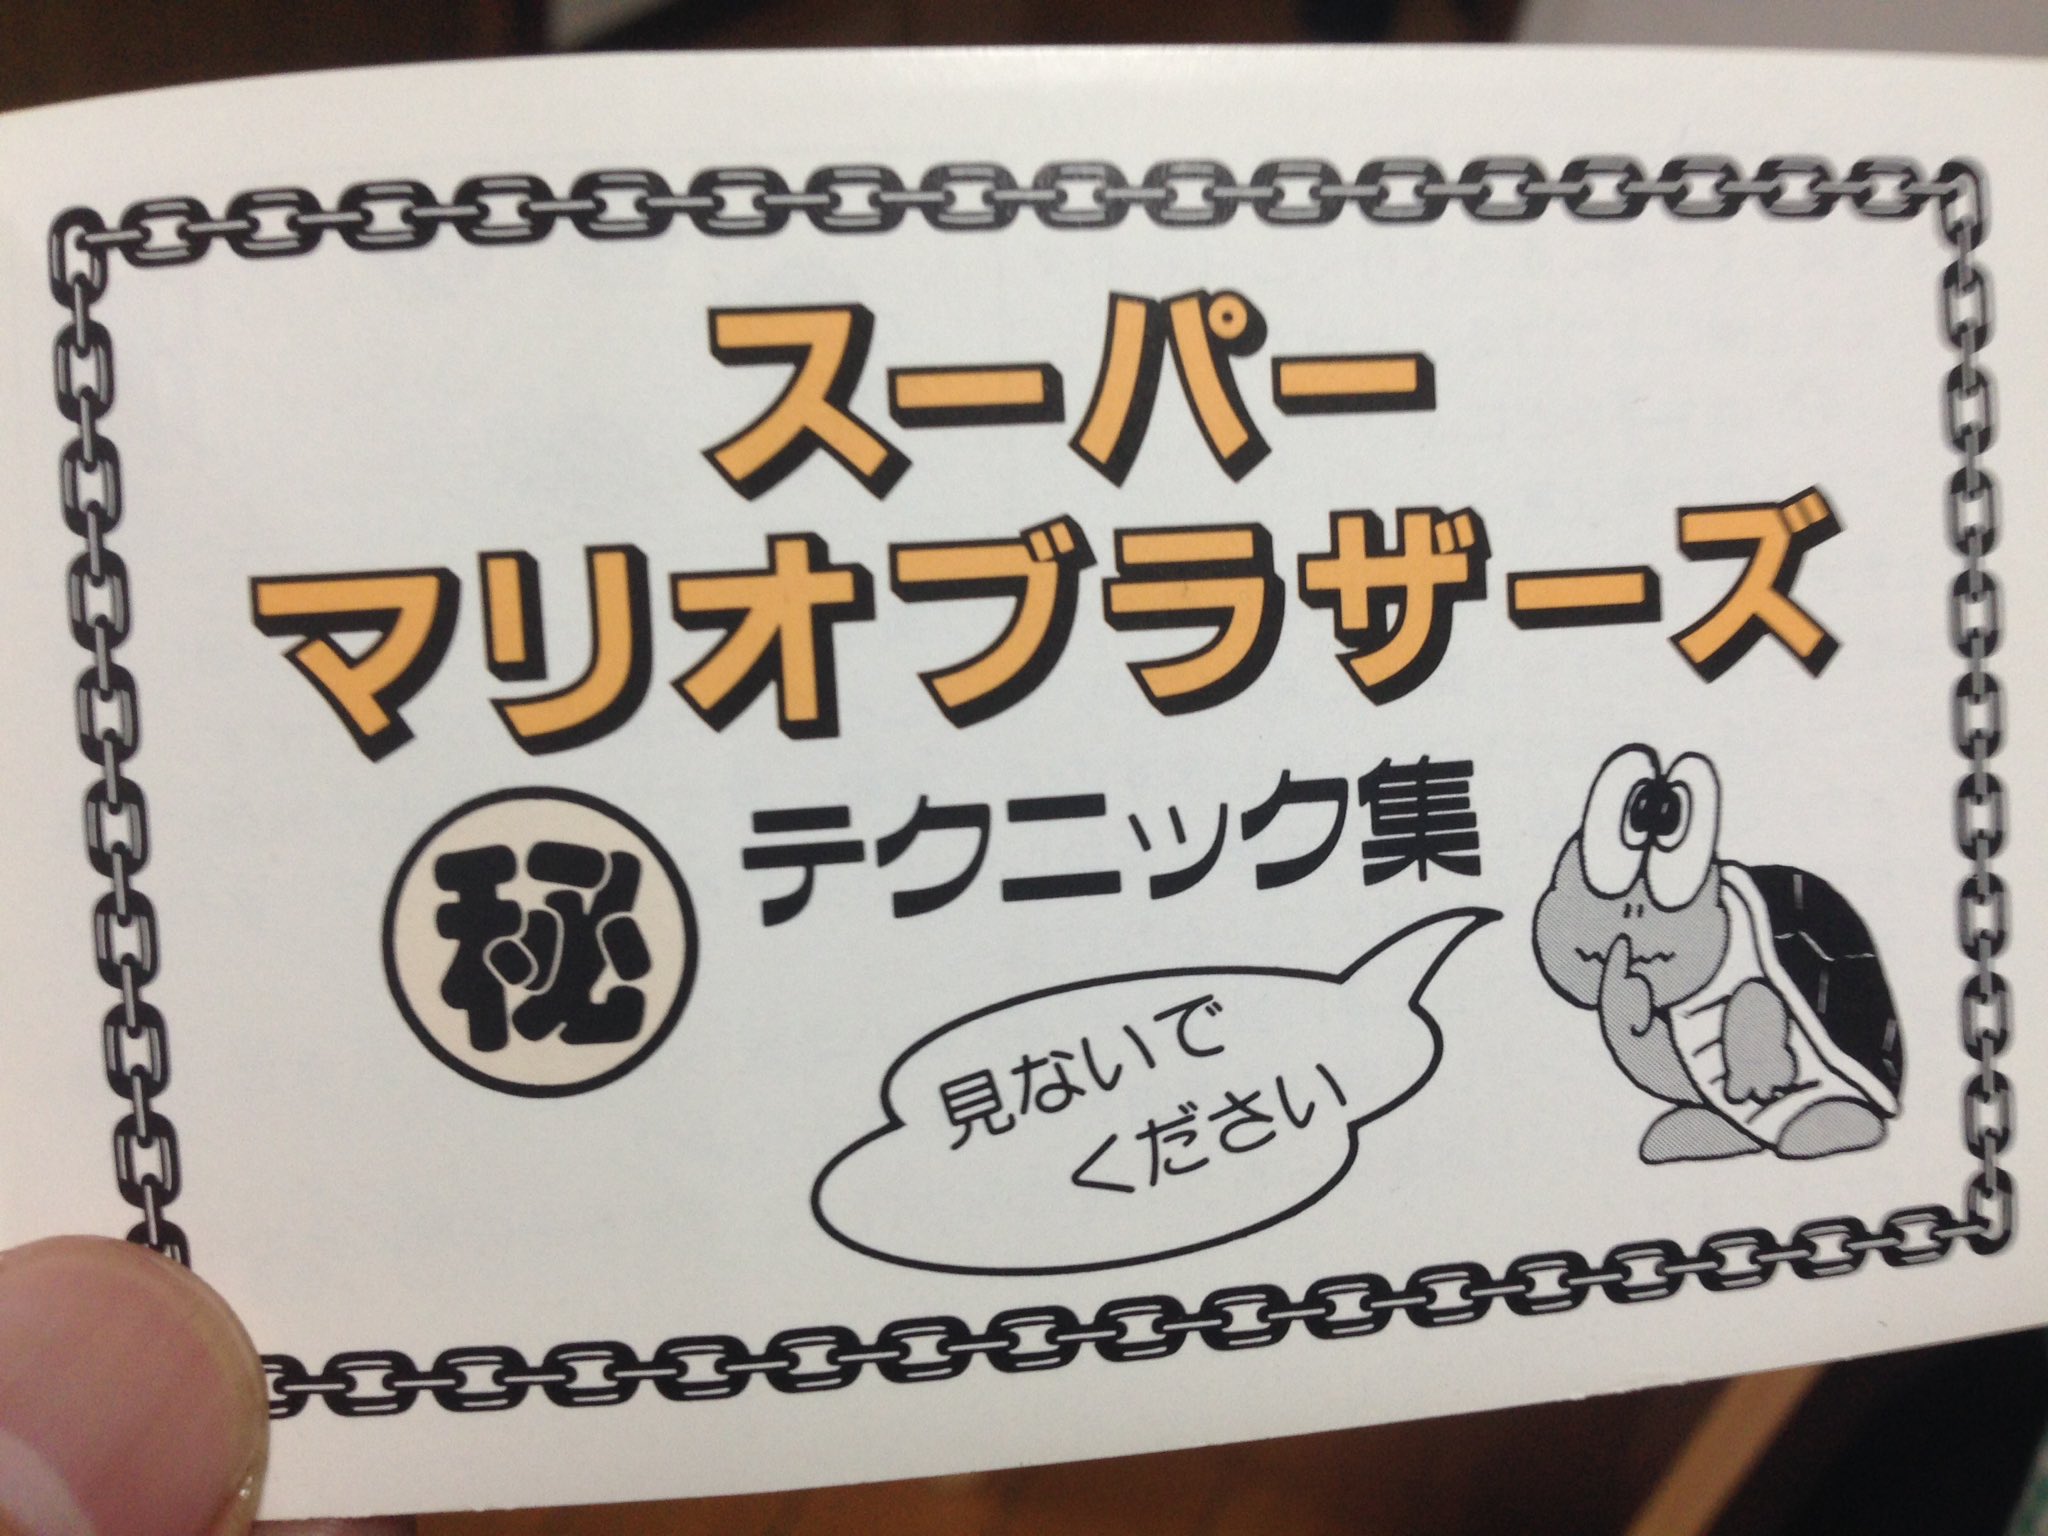 スーパー
マリオブラザーズ
㊙テクニック集
見ないで
ください